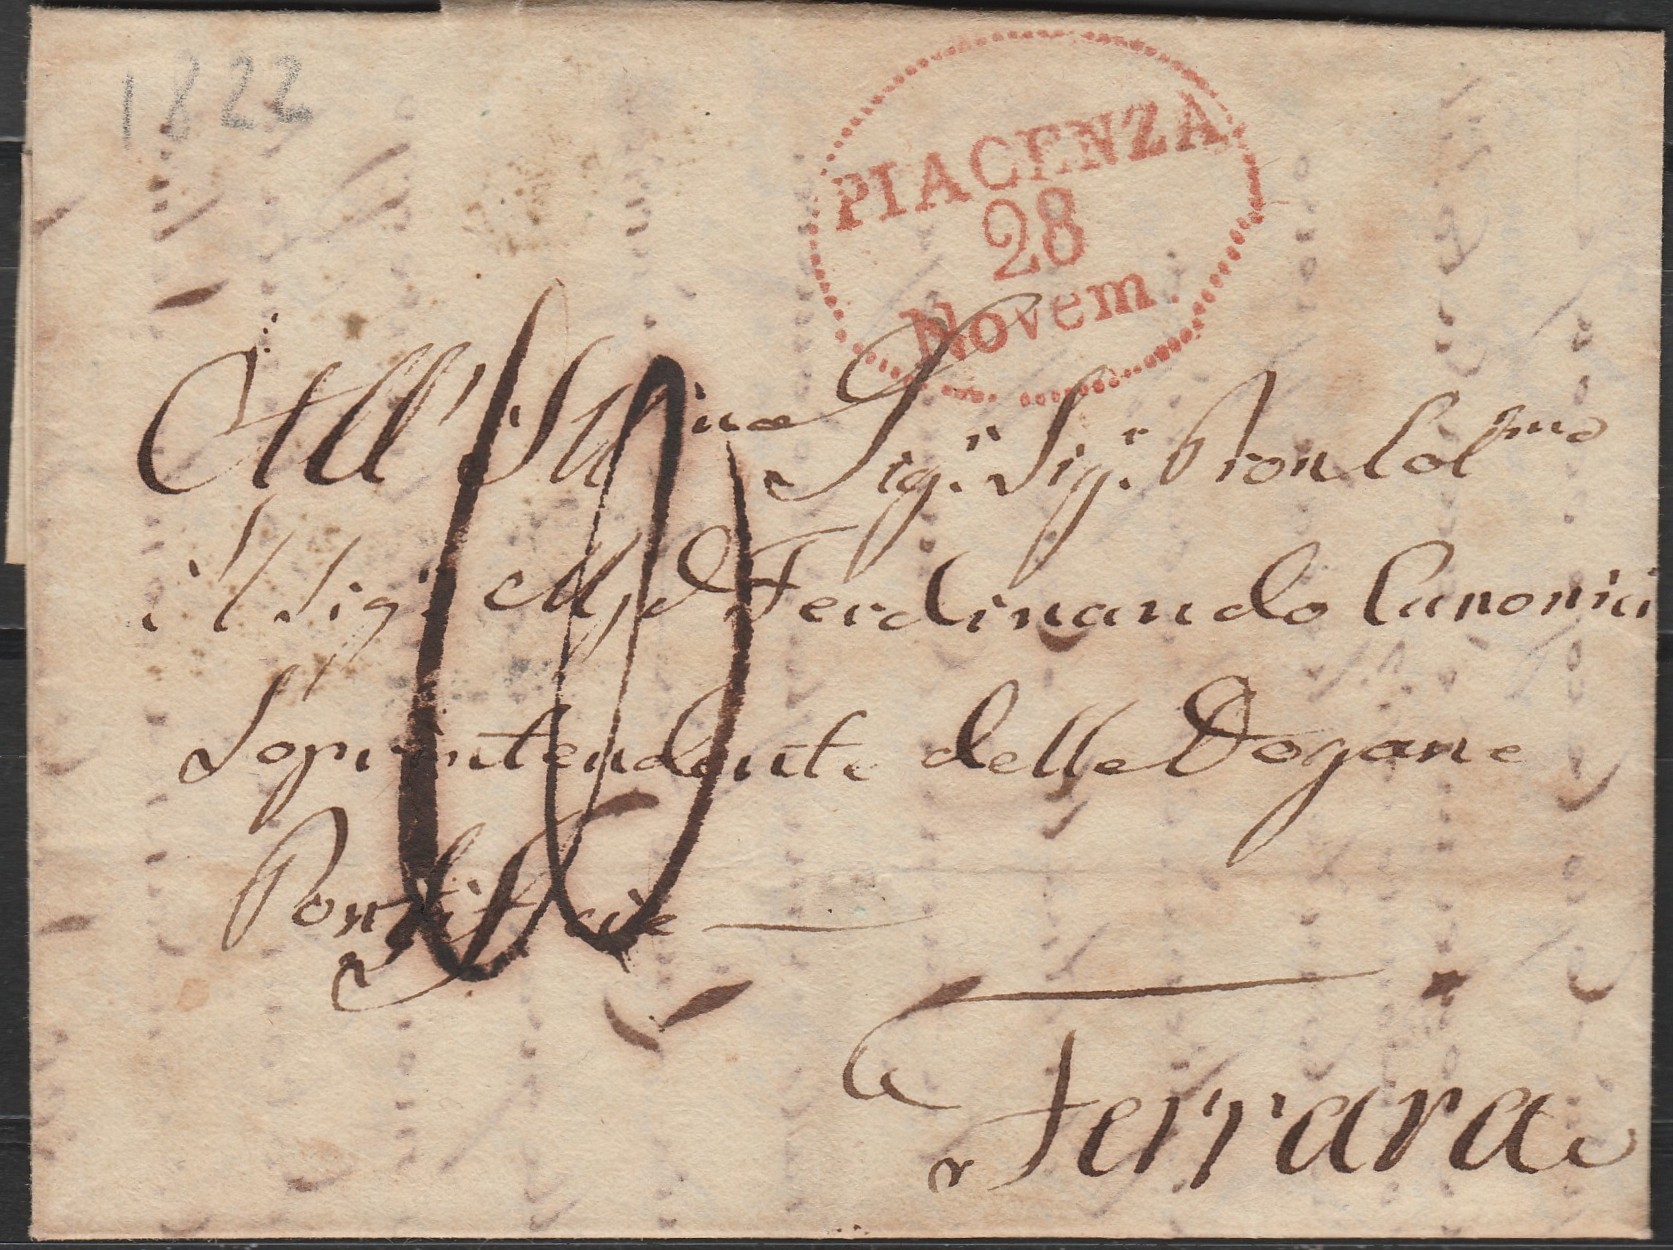 1822
PIACENZA
28
Novem.
All' Ill Sig.r Sig.r Pron Col.mo
il Sig.r Ferdinando Canonici
Soprintendente delle Dogane
Pontificie
Ferrara